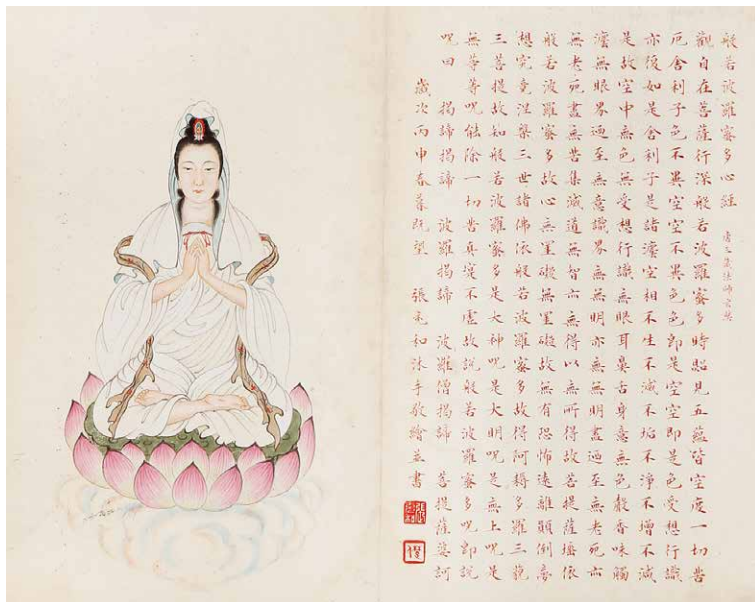 般若波羅蜜多心經
唐三藏法師玄奘
觀自在菩薩行深般若波羅蜜多時照見五蘊皆空度一切苦
厄舍利子色不異空空不異色色即是空空即是色受想行識
亦復如是舍利子是諸灋空相不生不滅不垢不淨不增不減
是故空中無色無受想行識無眼耳鼻舌身意無色聲香味觸
灋無眼界迺至無意識界無無明亦無無明盡迺至無老死亦
無老死盡無苦集滅道無智亦無得以無所得故菩提薩埵依
般若波羅蜜多故心無罣礙無罣礙故無有恐怖遠離顛倒夢
想究竟涅槃三世諸佛依般若波羅蜜多故得阿耨多羅三藐
三菩提故知般若波羅蜜多是大神呪是大明呪是無上呪是
無等等呪能除一切苦真實不虛故說般若波羅蜜多呪即說
呪曰 揭諦揭諦 波羅揭諦 波羅僧揭諦 菩提薩婆訶
歲次丙申春暮既望 張充和沐手敬繪並書